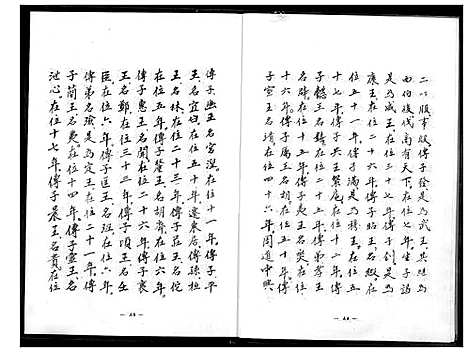 二以服事殷傳子發是為武王其姓為
西伯後伐商有天下在位七年生子誦
是為成王在位三十七年傳子釗是為
康王在位二十六年傳子昭王名瑕在位
五十一年傳子滿是為穆王在位五
十七年傳子共王繄扈在位十二年傳
子懿王名囏在位十五年傳弟孝王
名辟在位十五年傳子夷王名燮在位
十六年傳子厲王名胡在位五十年傳
子宣王名靖在位四十六年周道中興
傳子幽王名宮湼在位十一年傳子平
王名宜臼在位五十年遷東居傳孫桓
王名林在位二十三年傳子莊王名佗
在位五年傳子釐王名胡齊在位六年
傳子惠王名閬在位二十六年傳子襄
王名鄭在位三十二年傳子頃王名壬
臣在位六年傳子匡王名班在位六年
傳弟名瑜是為定王在位二十一年傳
子簡王名夷在位十四年傳子靈王名
泄心在位十七年傳子景王名貴在位